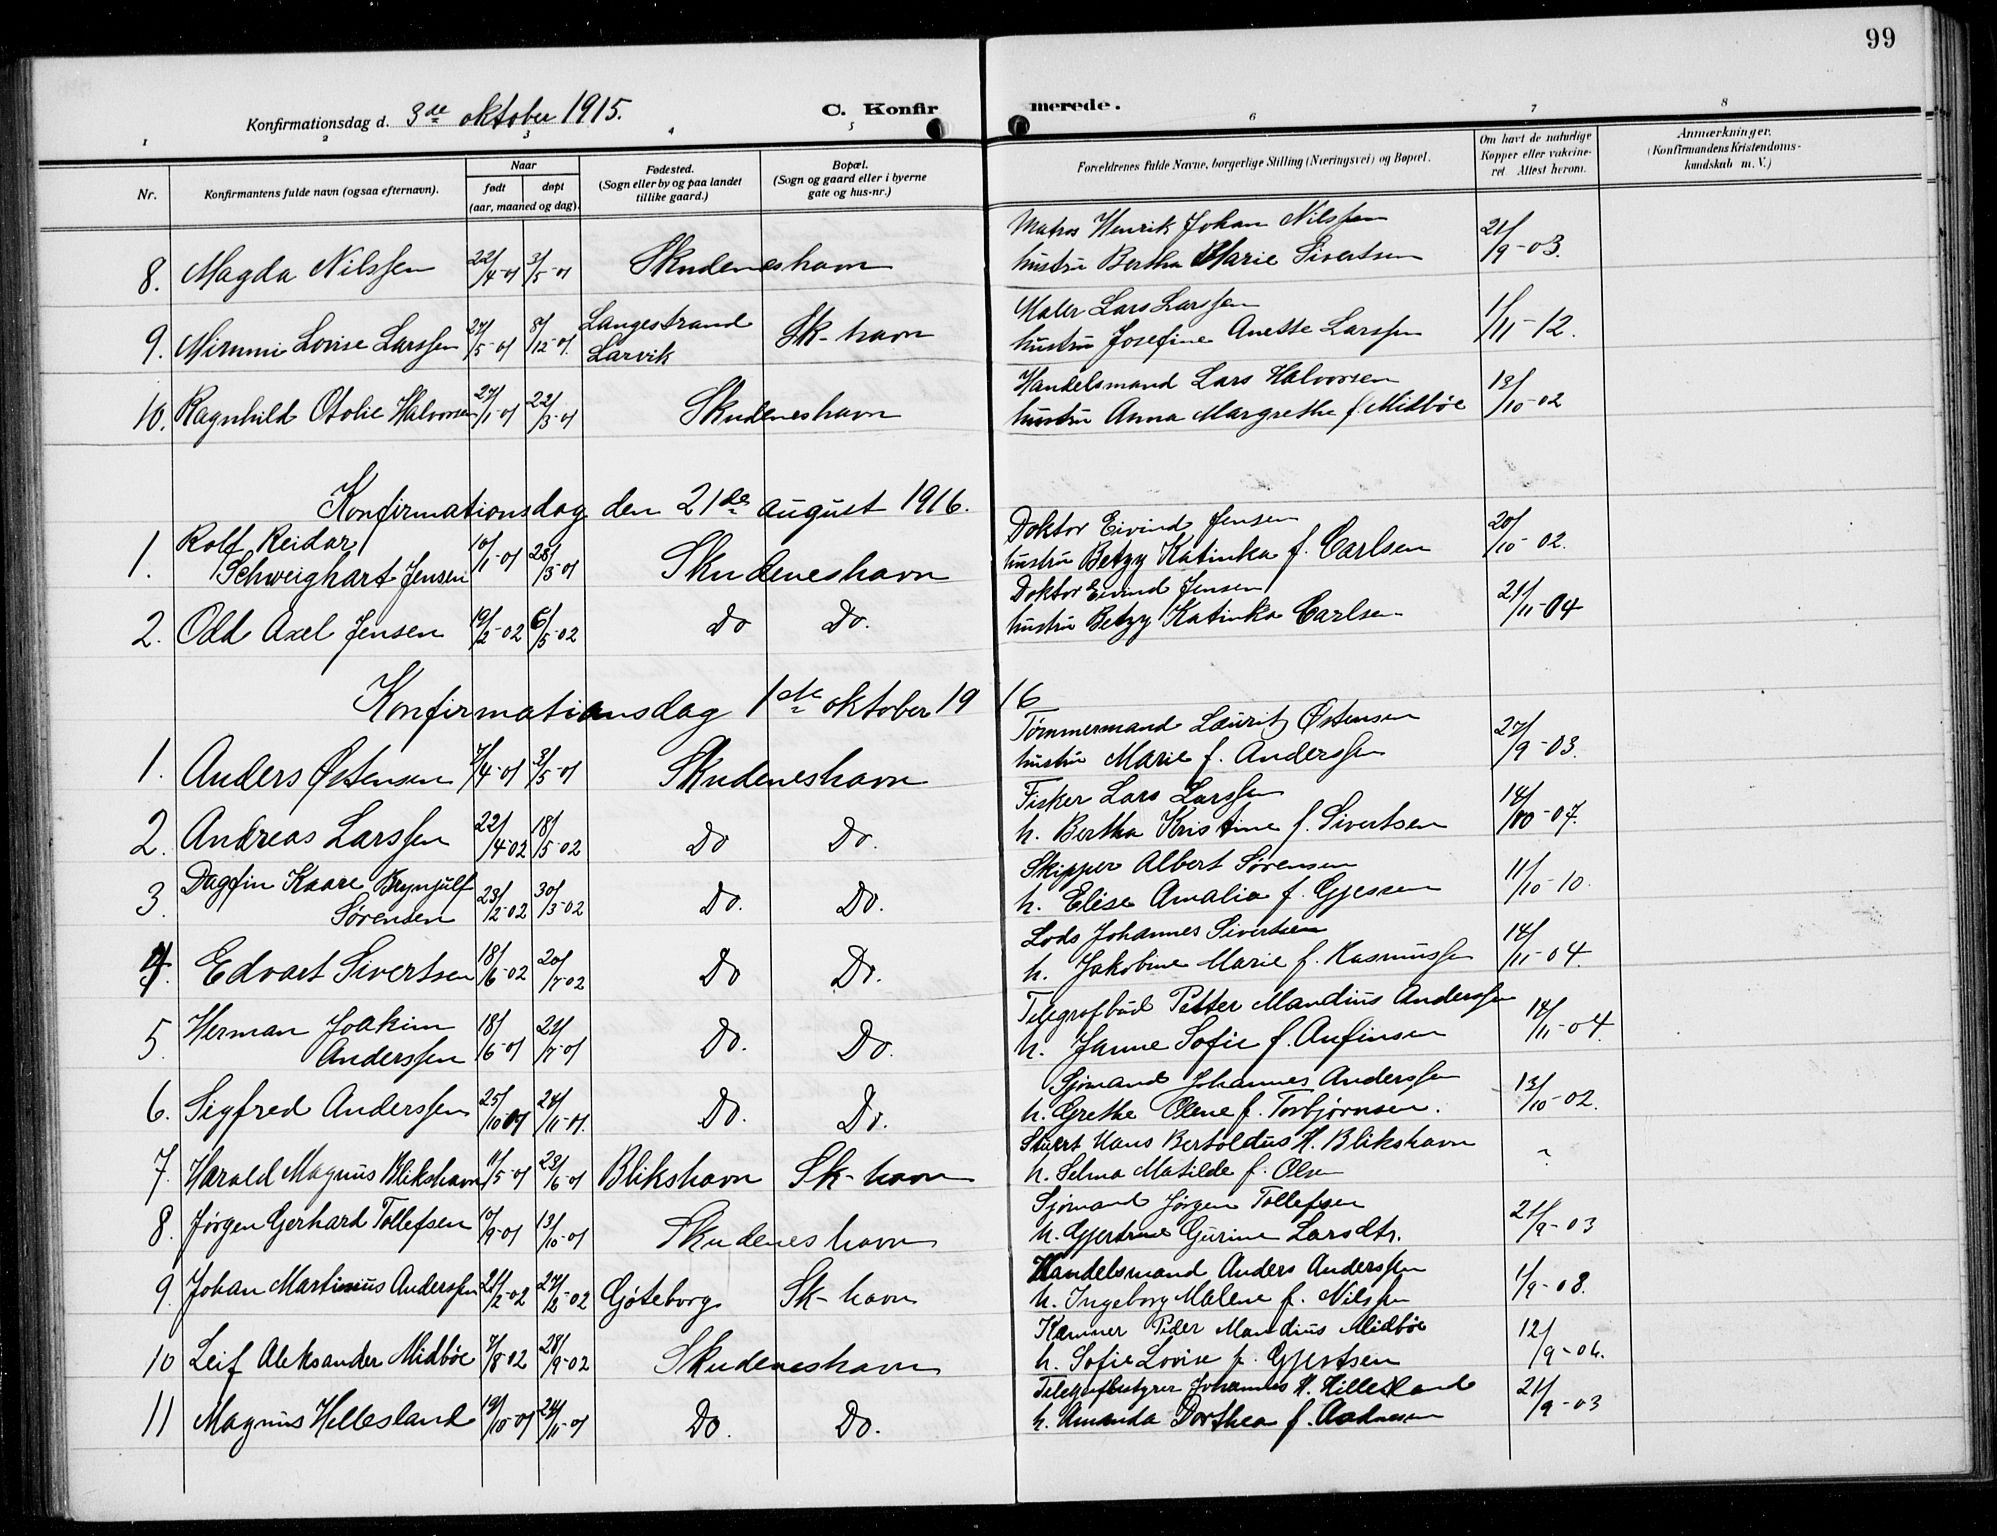 99
Konfirmationsdag d. 3de oktober 1915. C. Konfirmerede.
1 2 3 4 5 6 7 8
Nr. Konfirmantens fulde navn (ogsaa efternavn). Naar født døpt (aar, maaned og dag). Fødested. (Sogn eller by og paa landet tillike gaard.) Bopæl. (Sogn og gaard eller i byerne gate og hus-nr.) Forældrenes fulde Navne, borgerlige Stilling (Næringsvei) og Bopæl. Om havt de naturlige Kopper eller vakcineret. Attest herom. Anmærkninger. (Konfirmandens Kristendomskundskab m. V.)
Matros Henrik Johan Nilssen
8. Magda Nilssen 22/4-01 3/5-01 Skudeneshavn hustru Bertha Marie Sivertsen 21/9-03.
Maler Lars Larssen
9. Mimmi Lovise Larssen 27/5-01 8/12-01. Langestrand Larvik Sk-havn hustru Josefine Anette Larssen 1/11-12.
Handelsmand Lars Halvorsen
10. Ragnhild Otolie Halvorsen 27/1-01 22/3-01 Skudeneshavn hustru Anna Margrethe f. Midbøe 13/10-02
Konfirmationsdag den 21de august 1916.
1. Rolf Reidar Schweighart Jensen 10/1-01 28/5-01 Skudeneshavn Doktor Eivind Jensen
hustru Betzy Katinka f. Carlsen 20/10-02.
Doktor Eivind Jensen
2. Odd Axel Jensen 19/2-02 6/5-02 Do Do. hustru Betzy Katinka Carlsen 21/11-04
Konfirmationsdag 1ste oktober 1916
Tømmermand Lauritz Østensen
1. Anders Østensen 7/4-01 3/5-01 Skudeneshavn hustru Marie f. Anderssen 27/9-03.
Fisker Lars Larssen
2. Andreas Larssen 22/4-02 18/5-02 Do Do. h. Bertha Kristine f. Sivertsen 14/10-07.
Skipper Albert Sørensen
3. Dagfin Kaare Brynjulf Sørensen 23/2-02 30/3-02 Do. Do. h. Elise Amalia f. Gjessen 11/10-10.
Lods Johannes Sivertsen
4. Edvart Sivertsen 18/6-02 20/7-02 Do Do. h. Jakobine Marie f. Rasmussen 14/11-04.
Telegrafbud Petter Mandius Anderssen
5. Herman Joakim Anderssen 18/6-01 21/7-01 Do. Do. h. Janne Sofie f. Anfinsen 14/11-04.
Sjømand Johannes Anderssen
6. Sigfred Anderssen 25/10-01 24/11-01. Do. Do. h. Grethe Olene f. Torbjørnsen. 13/10-02.
Stuert Hans Bertoldus H. Blikshavn
7. Harald Magnus Blikshavn 11/5-01 23/6-01 Blikshavn Sk-havn h. Selma Matilde f. Olsen ?
Sjømand Jørgen Tollefsen
8. Jørgen Gerhard Tollefsen 10/9-01 13/10-01 Skudeneshavn h. Gjertrue Gurine Larsdtr. 21/9-03
Handelsmand Anders Anderssen
9. Johan Martinius Anderssen 21/2-02 Göteborg Sk-havn h. Ingeborg Malene f. Nilssen 1/9-08.
Kæmner Peder Mandius Midbøe
10 Leif Aleksander Midbøe 7/8-02 28/9-02 Skudeneshavn h. Sofie Lovise f. Gjertsen 12/9-06.
Telegrafbestyrer Johannes H. Hillesland
11 Magnus Hillesland 19/10-01 24/11-01 Do. Do. h. Amanda Dorthea f. Aadnesen 21/9-03